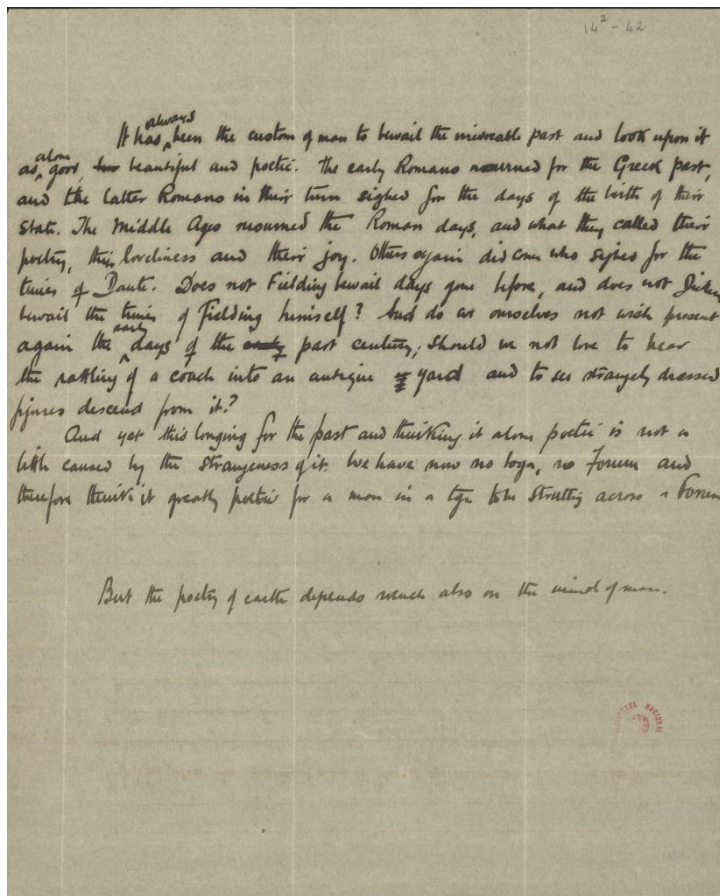 14² - 42
It has always been the custom of man to bewail the irrevocable past and look upon it
as alone good, beautiful and poetic. The early Romans mourned for the Greek past,
and the latter Romans in their turn sighed for the days of the birth of their
state. The Middle Ages mourned the Roman days, and what they called their
poetry, their loveliness and their joy. Others again did come who sighed for the
times of Dante. Does not Fielding bewail days gone before, and does not Dickens
bewail the times of Fielding himself? And do we ourselves not wish present
again the early days of the past century; should we not love to hear
the rattling of a coach into an antique yard and to see strangely dressed
figures descend from it?
And yet this longing for the past and thinking it alone poetic is not a
little caused by the strangeness of it. We have now no toga, no Forum and
therefore think it greatly poetic for a man in a toga to be strutting across a Forum
But the poetry of earth depends much also on the mind of man.
BIBLIOTECA NACIONAL